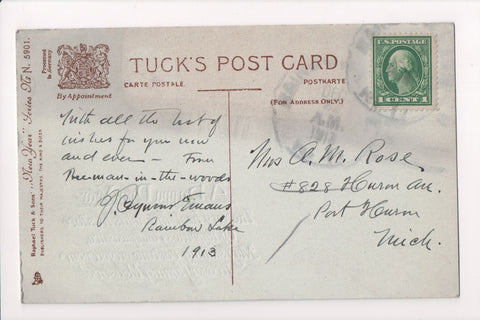 "New Year" Series No. N. 5901.
Raphael Tuck & Sons'
PUBLISHERS TO THEIR MAJESTIES THE KING & QUEEN
Processed in Germany
By Appointment
TUCK'S POST CARD
CARTE POSTALE.
POSTKARTE
(FOR ADDRESS ONLY.)
With all the best of
wishes for you now
and ever — From
The man-in-the-woods
Evans
Rainbow Lake
1913
U.S. POSTAGE
1 CENT 1
A.M.
Mrs A. M. Rose
#828 Huron Av.
Port Huron
Mich.